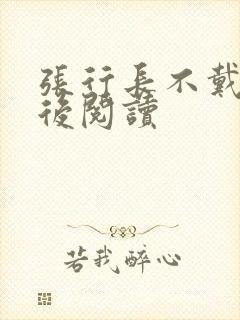 張行長不戴
後閱讀
若我醉心